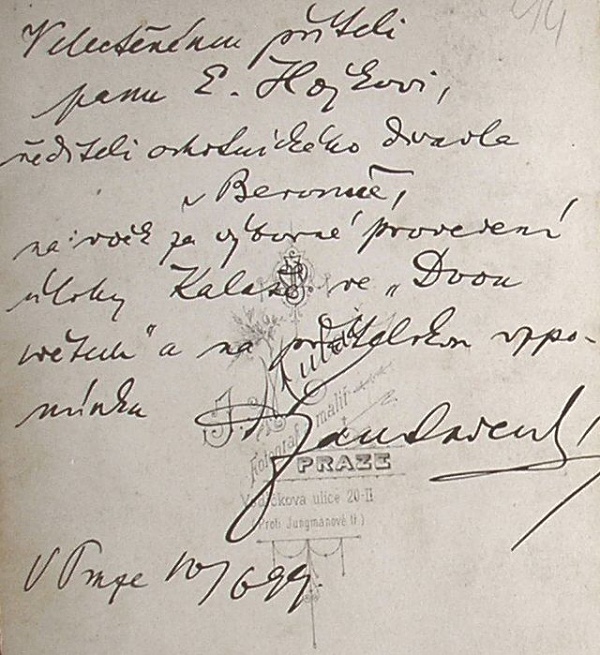 14
Velectěnému příteli
panu E. Hojkovi,
řediteli ochotnického divadla
v Berouně,
na vděk za výborné provedení
úlohy ve „Dvou
světech" a na přátelskou vzpo-
mínku
J. Mulač
Fotograf a malíř
v
PRAZE
Vodičkova ulice 20-II
(Proti Jungmanově tř.)
V Praze 10/6 99.